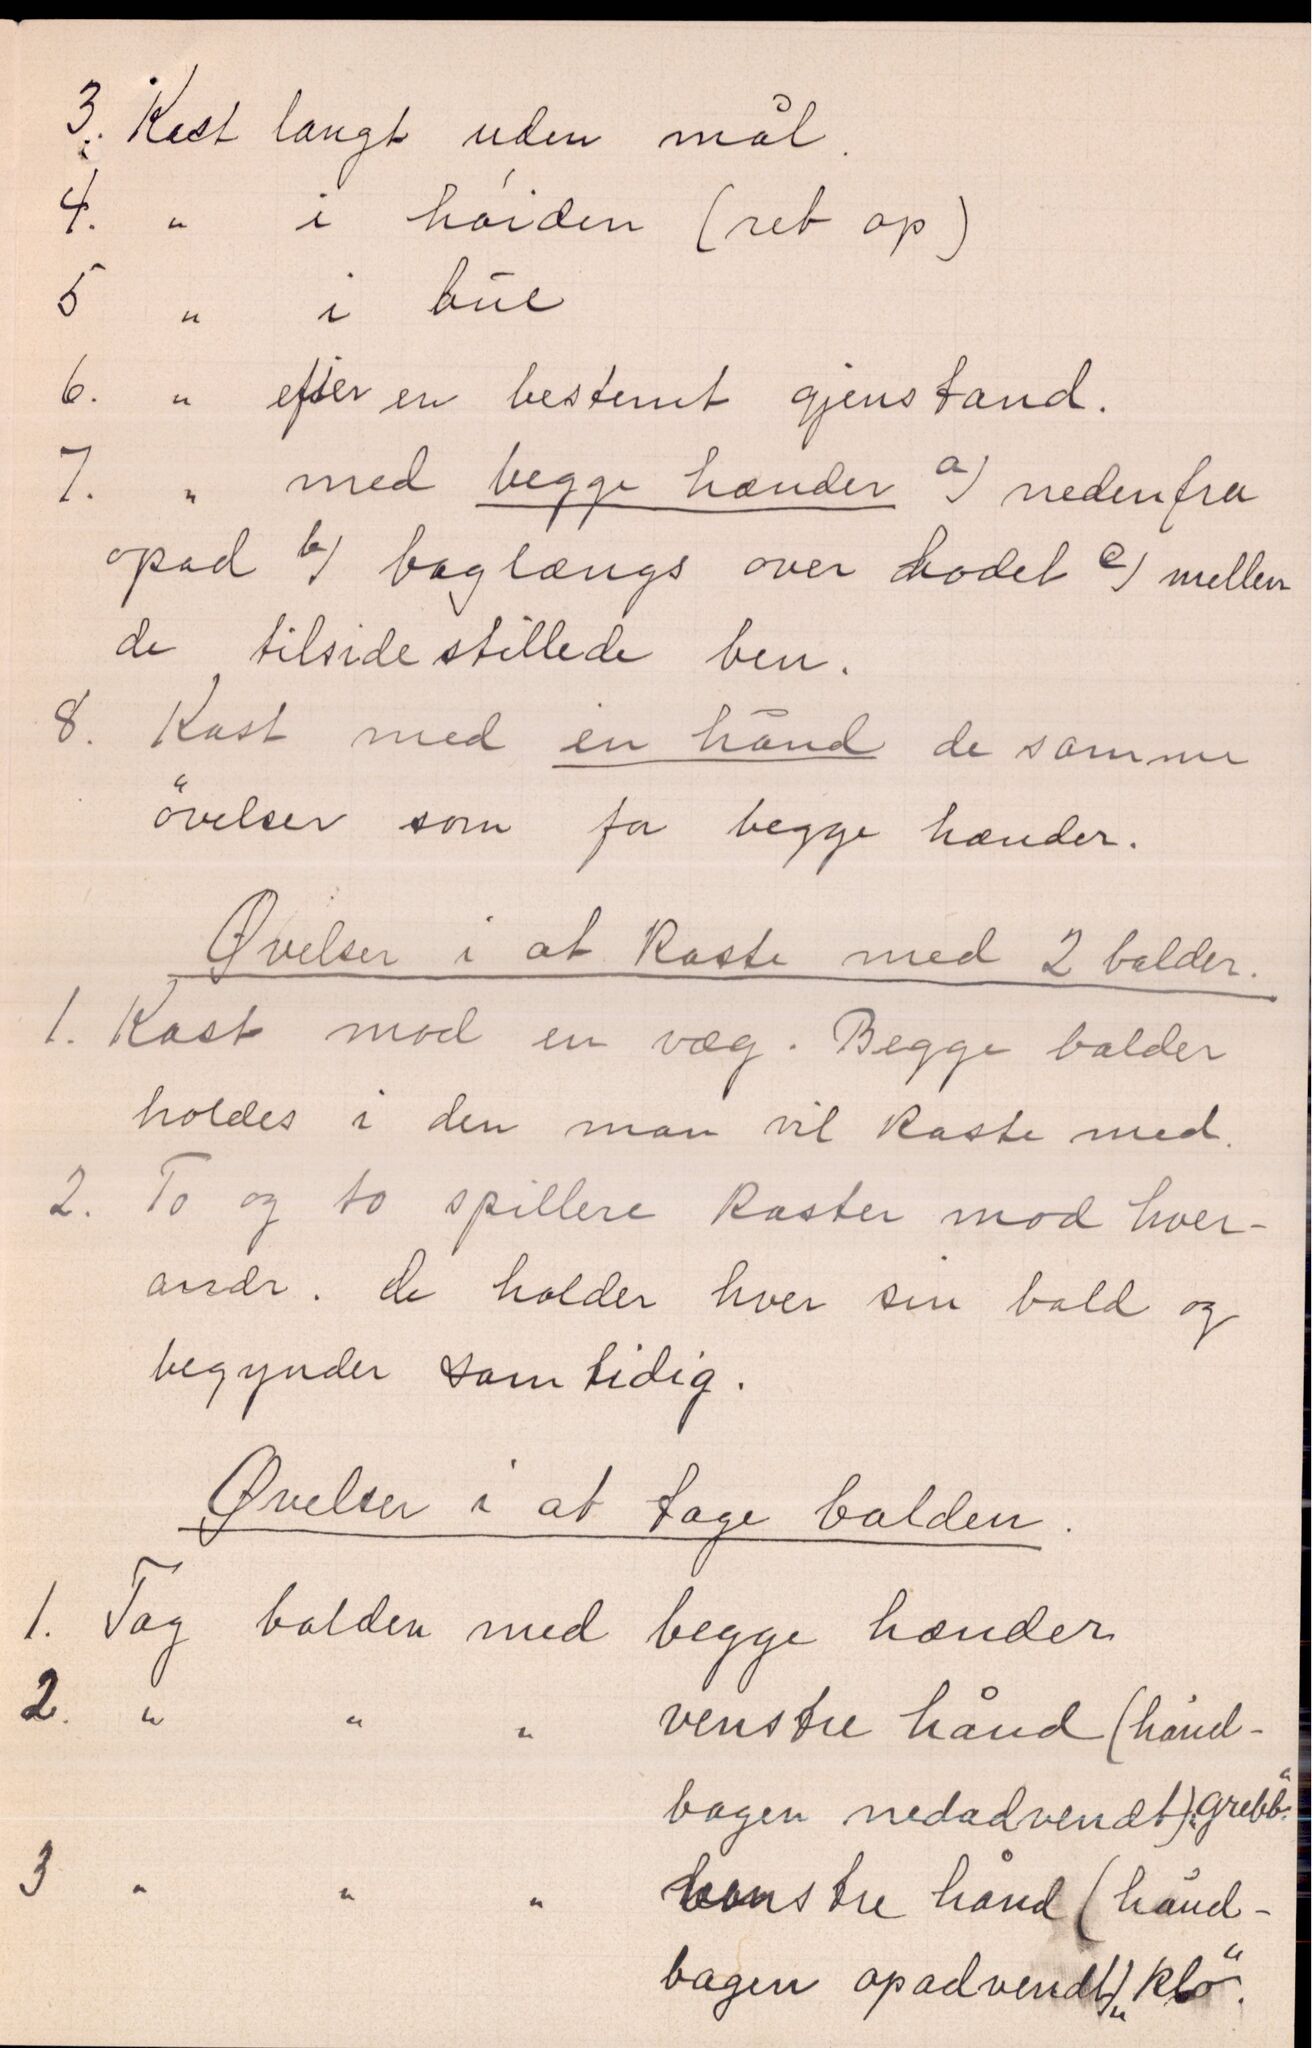 3. Kast langt uden mål.
4. " i høiden (ret op)
5 " i bue
6. " efter en bestemt gjenstand.
7. " med begge hænder a) nedenfra
opad b) baglængs over hodet c) mellem
de tilsidestillede ben.
8. Kast med én hånd de samme
övelser som for begge hænder.
Øvelser i at kaste med 2 balder.
1. Kast mod en væg. Begge balder
holdes i den man vil kaste med.
2. To og to spillere kaster mod hver-
andr. de holder hver sin bald og
begynder samtidig.
Øvelser i at tage balden.
1. Tag balden med begge hænder
2. " " " venstre hånd (hånd-
bagen nedadvendt) „grebb."
3 " " " venstre hånd (hånd-
bagen opadvendt) „klo".